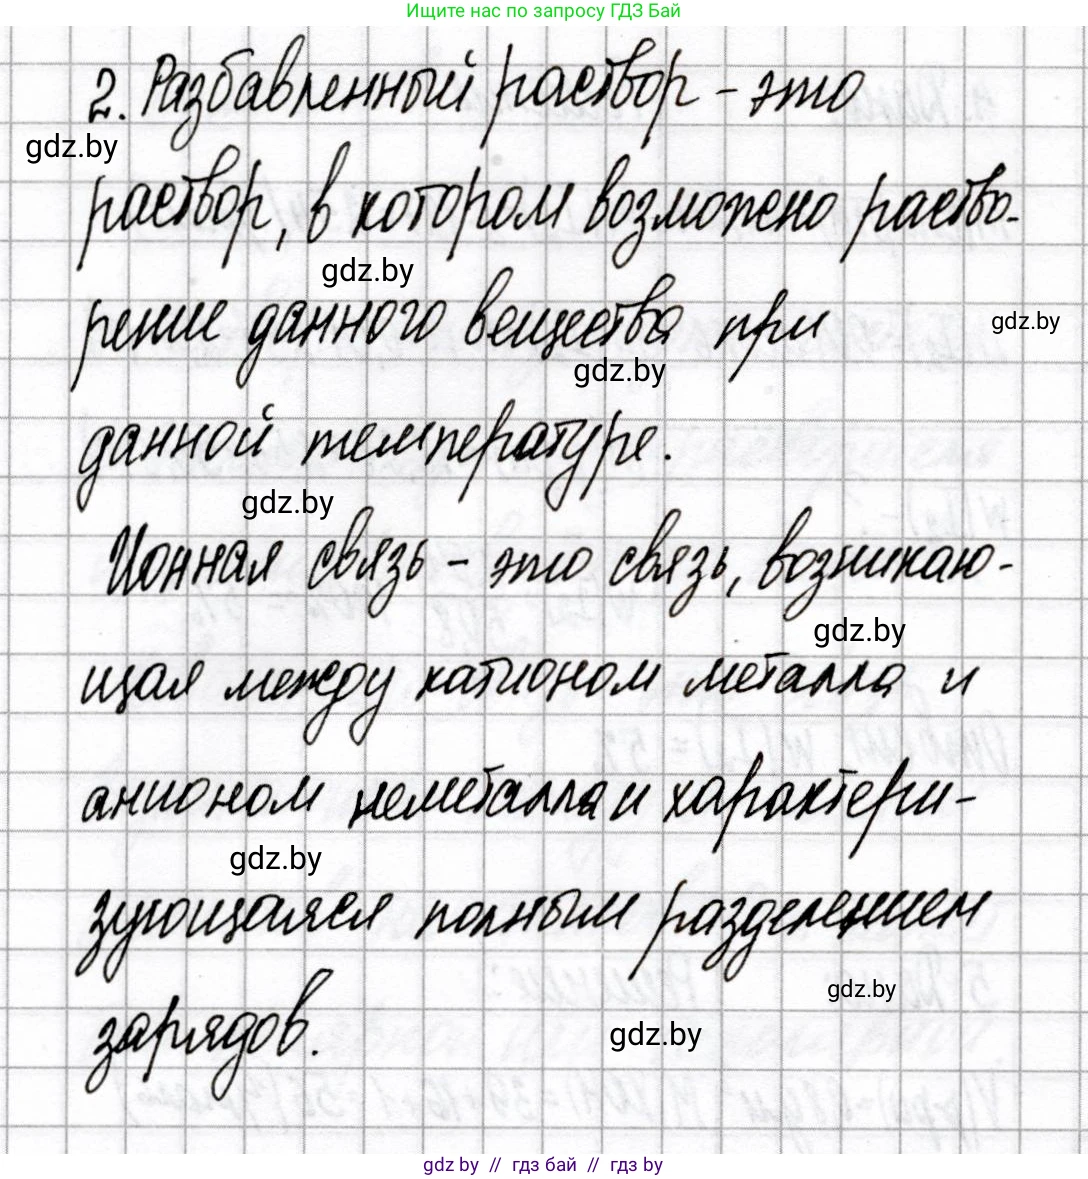 Ищите нас по запросу ГДЗ Бай
2. Разбавленный раствор - это
gdz.by
раствор, в котором возможено раство-
gdz.by
рение данного вещества при
gdz.by
gdz.by
данной температуре.
gdz.by
Ионная связь - это связь, возникаю-
gdz.by
щая между катионом металла и
анионом неметалла и характери-
gdz.by
зующаяся полным разделением
gdz.by
зарядов.
gdz.by
gdz by // гдз бай // гдз by